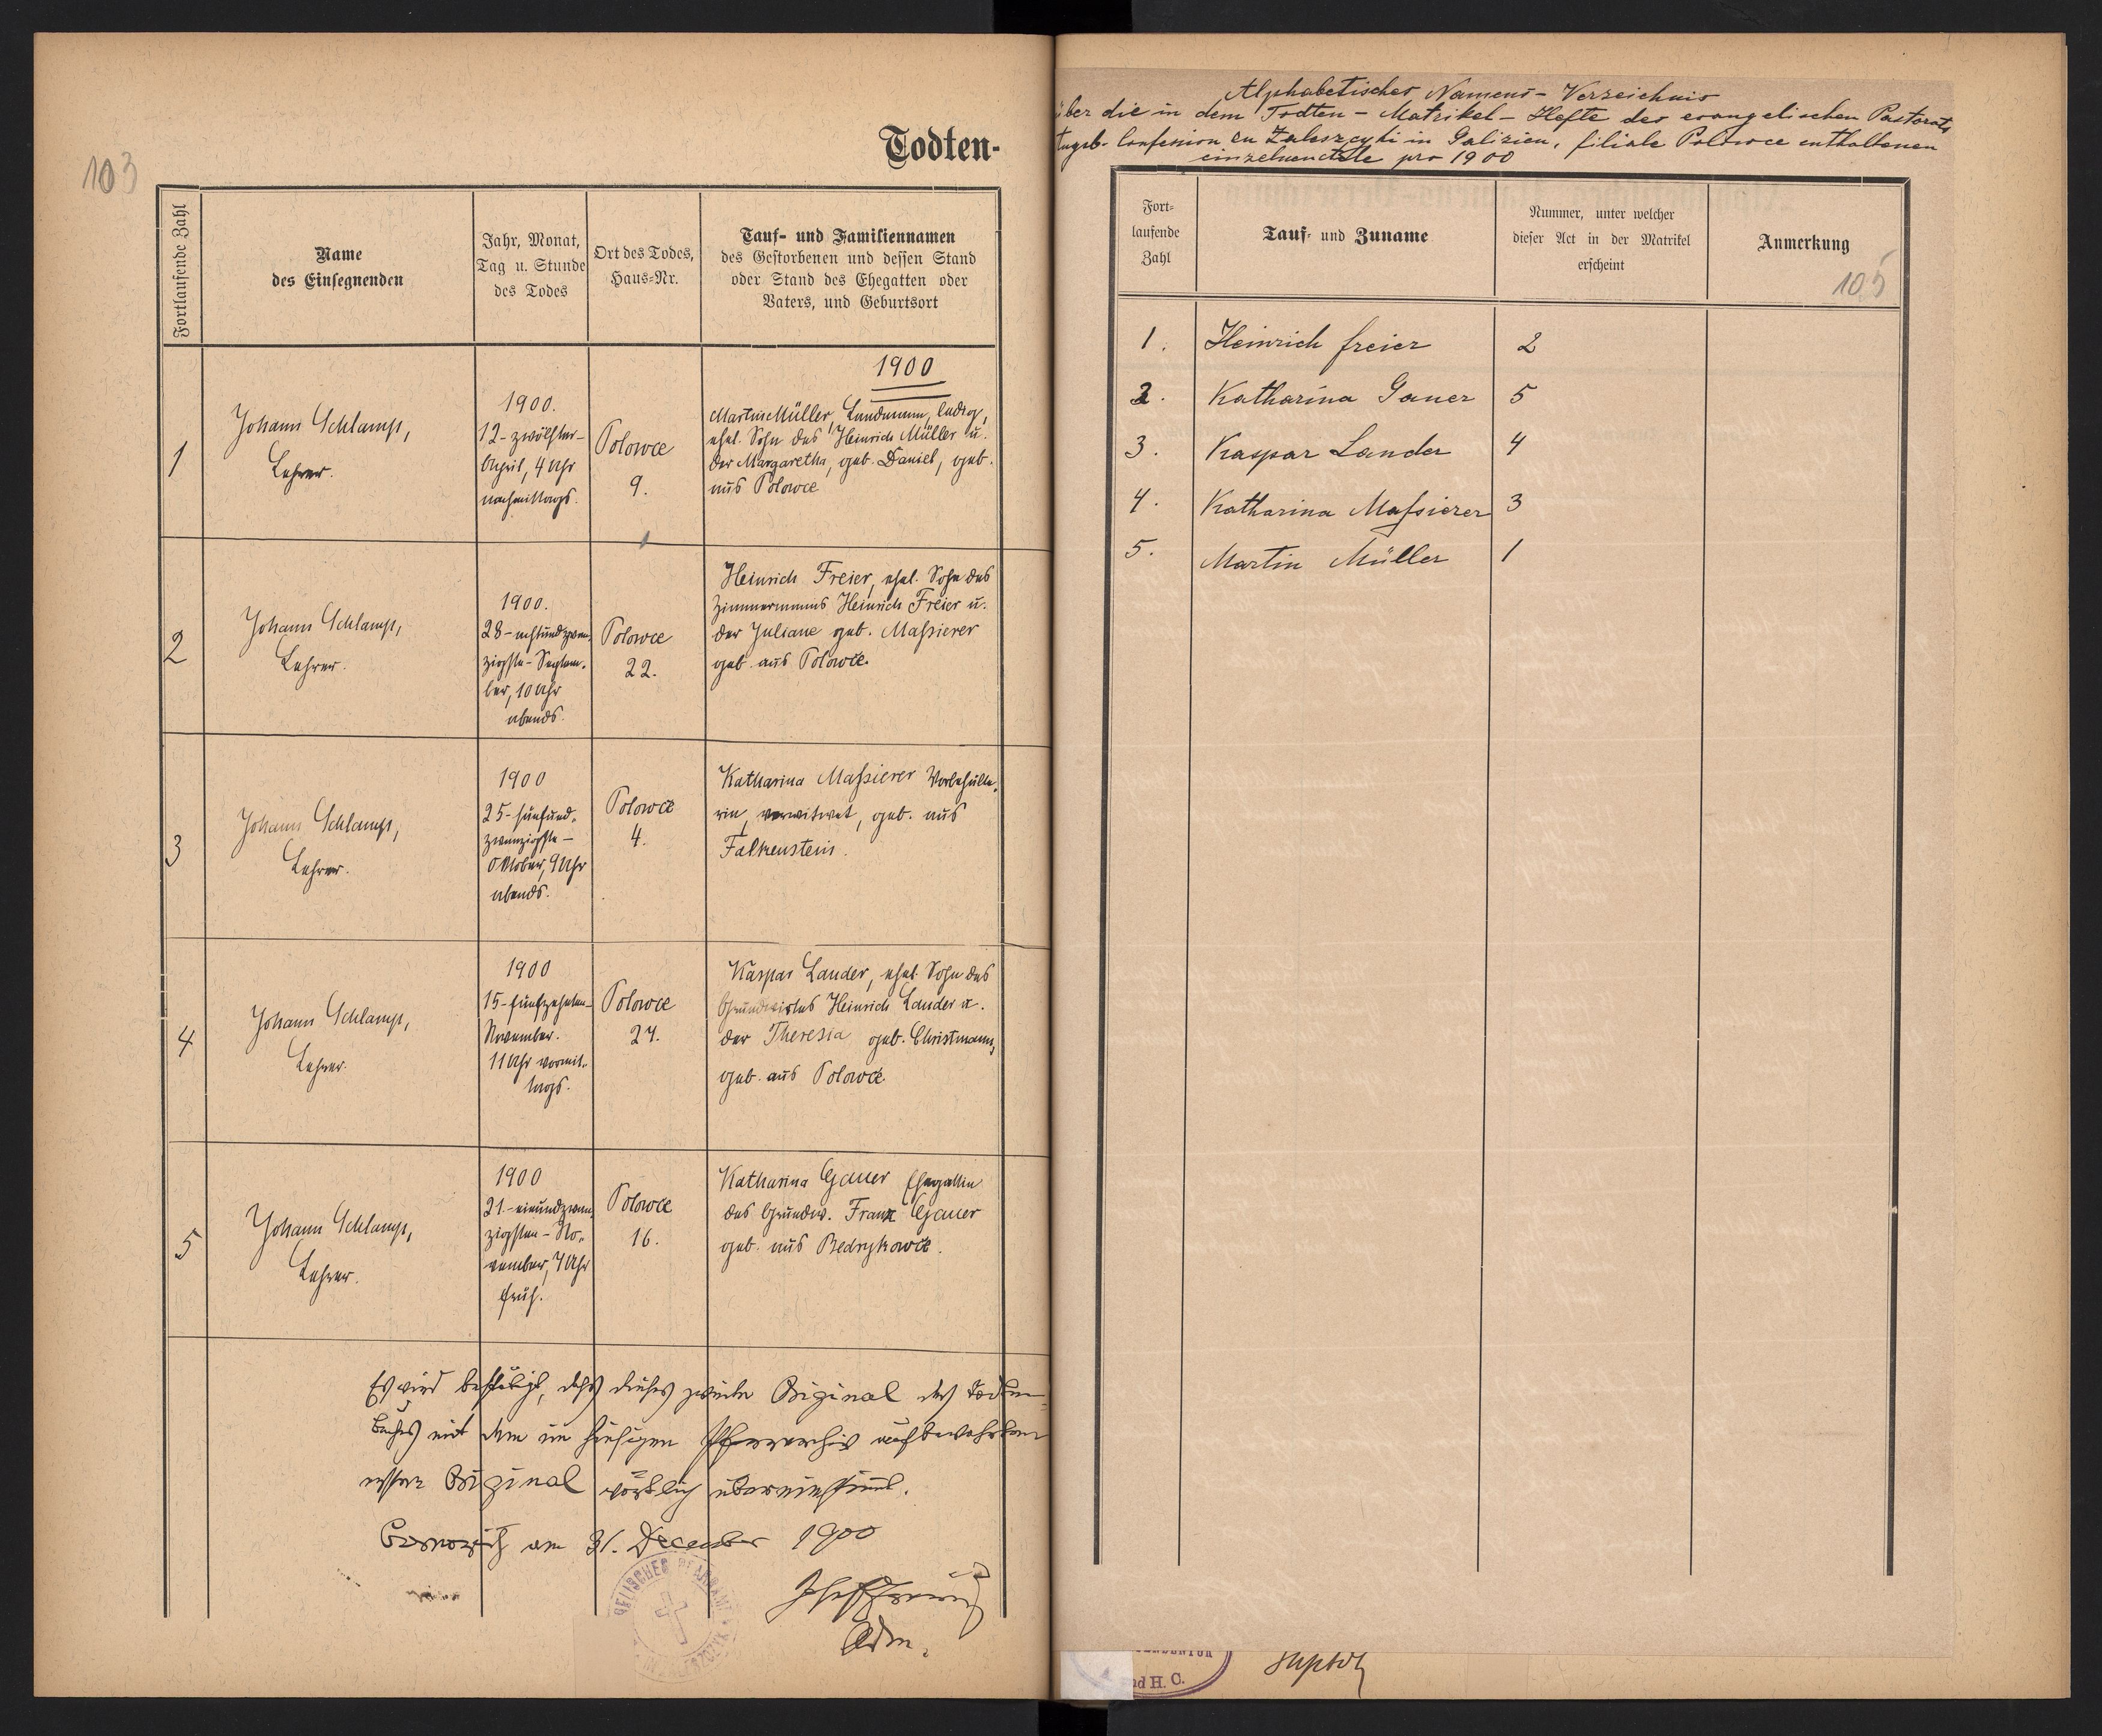 103
Todten-
Fortlaufende Zahl
Name
des Einsegnenden
Jahr, Monat,
Tag u. Stunde
des Todes
Ort des Todes,
Haus-Nr.
Tauf- und Familiennamen
des Gestorbenen und dessen Stand
oder Stand des Ehegatten oder
Vaters, und Geburtsort
1900
1
Johann Schlamp,
Lehrer.
1900.
12 - zwölften -
April, 4 Uhr
nachmittags.
Polowce
9.
Martin Müller, Landmann, ledig,
ehel. Sohn des Heinrich Müller u.
der Margaretha, geb. Daniel, geb.
aus Polowce
2
Johann Schlamp,
Lehrer.
1900.
28 - achtundzwan-
zigste - Septem-
ber, 10 Uhr
abends.
Polowce
22.
Heinrich Freier, ehel. Sohn des
Zimmermanns Heinrich Freier u.
der Juliane geb. Maßierer
geb. aus Polowce.
3
Johann Schlamp,
Lehrer.
1900
25 - fünfund-
zwanzigste -
Oktober, 9 Uhr
abends.
Polowce
4.
Katharina Maßierer
rin, verwitwet, geb. aus
Falkenstein.
4
Johann Schlamp,
Lehrer.
1900
15 - fünfzehnten -
November.
11 Uhr vormit-
tags.
Polowce
27.
Kaspar Lander, ehel. Sohn des
Grundwirtes Heinrich Lander u.
der Theresia geb. Christmann,
geb. aus Polowce.
5
Johann Schlamp,
Lehrer.
1900
21 - einundzwan-
zigsten - No-
vember, 7 Uhr
früh.
Polowce
16.
Katharina Gauer Ehegattin
des Grundw. Franz Gauer
geb. aus Bedrykowce.
Es wird bestätigt, daß dieses zweite Original des Todten-
buches mit dem im hiesigen Pfarrarchiv aufbewahrten
ersten Original wörtlich übereinstimmt.
am 31. December 1900
Adm.
Alphabetisches Namens-Verzeichnis
über die in dem Todten-Matrikel-Hefte des evangelischen Pastorats
Augsb. Confession zu Zaleszczyki in Galizien, filiale Polowce enthaltenen
einzelnen Acte pro 1900
Fort-
laufende
Zahl
Tauf- und Zuname
Nummer, unter welcher
dieser Act in der Matrikel
erscheint
Anmerkung
105
1. Heinrich Freier 2
2. Katharina Gauer 5
3. Kaspar Lander 4
4. Katharina Maßierer 3
5. Martin Müller 1
nd H. C.